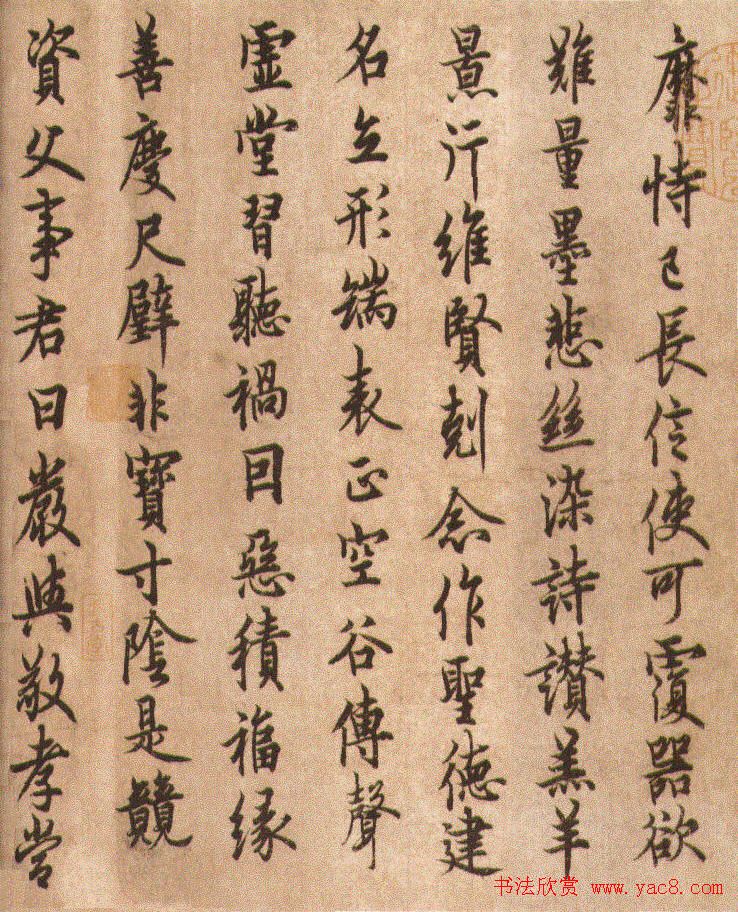 靡恃己長信使可覆器欲
難量墨悲絲染詩讚羔羊
景行維賢剋念作聖德建
名立形端表正空谷傳聲
虛堂習聽禍因惡積福緣
善慶尺璧非寶寸陰是競
資父事君曰嚴與敬孝當
书法欣赏 www.yac8.com